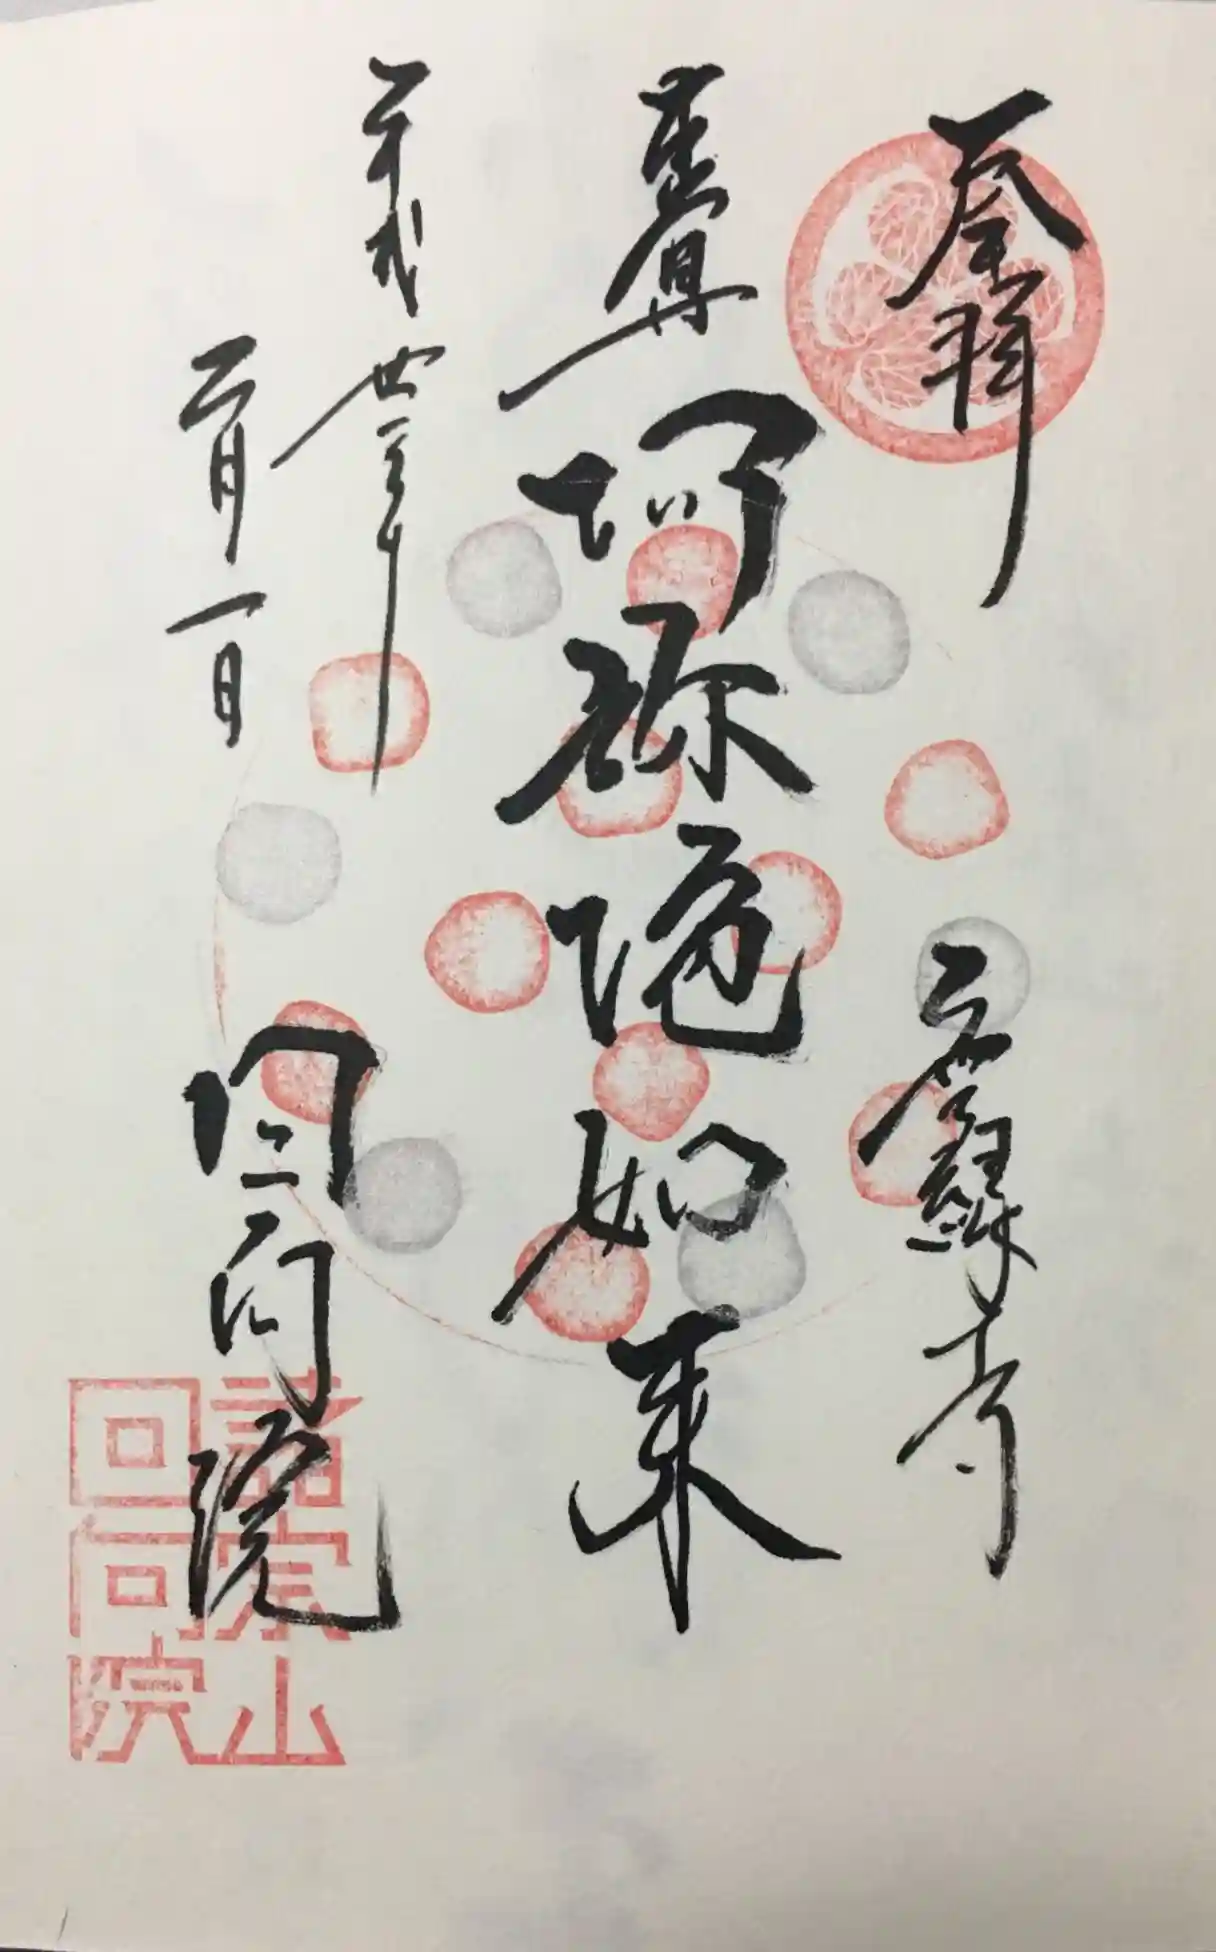 奉拝 無縁寺
本尊
阿弥陀如来
平成廿三年
二月一日
回向院
諸宗山
回向院